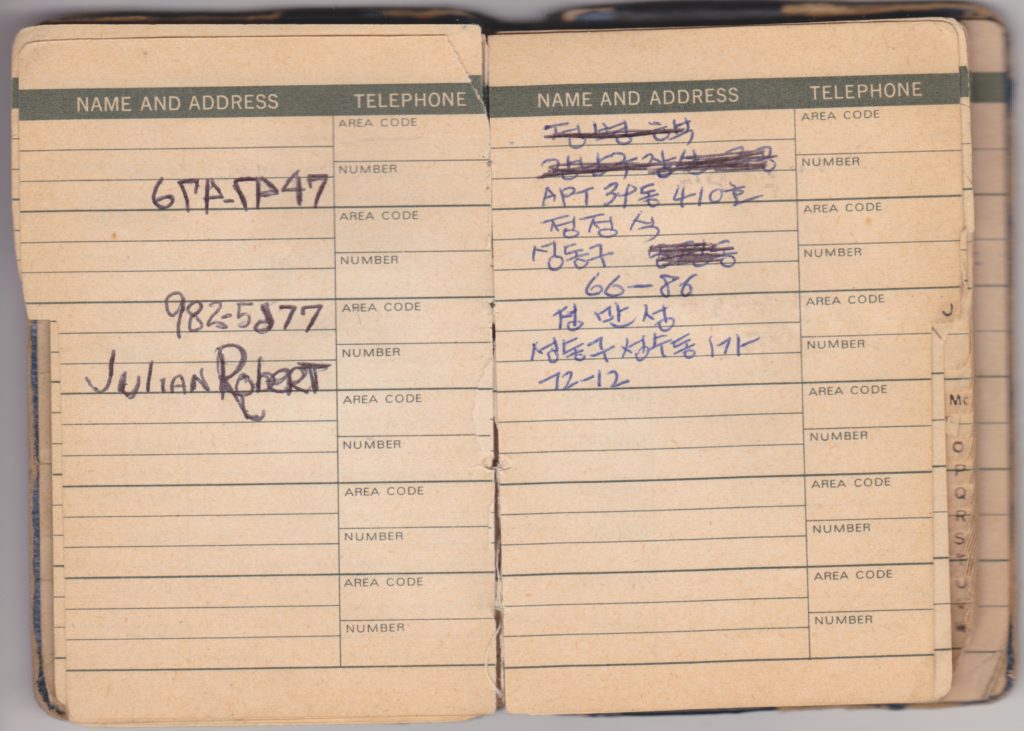 NAME AND ADDRESS TELEPHONE
AREA CODE
NUMBER
AREA CODE
NUMBER
982-5877
AREA CODE
JULIAN ROBERT
NUMBER
AREA CODE
NUMBER
AREA CODE
NUMBER
AREA CODE
NUMBER
NAME AND ADDRESS TELEPHONE
AREA CODE
NUMBER
APT 39동 410호
AREA CODE
정정
성동구
NUMBER
66-86
AREA CODE
정만성
성동구 성수동 1가
NUMBER
72-12
AREA CODE
NUMBER
AREA CODE
NUMBER
AREA CODE
NUMBER
J
Mc
O
P
Q
R
S